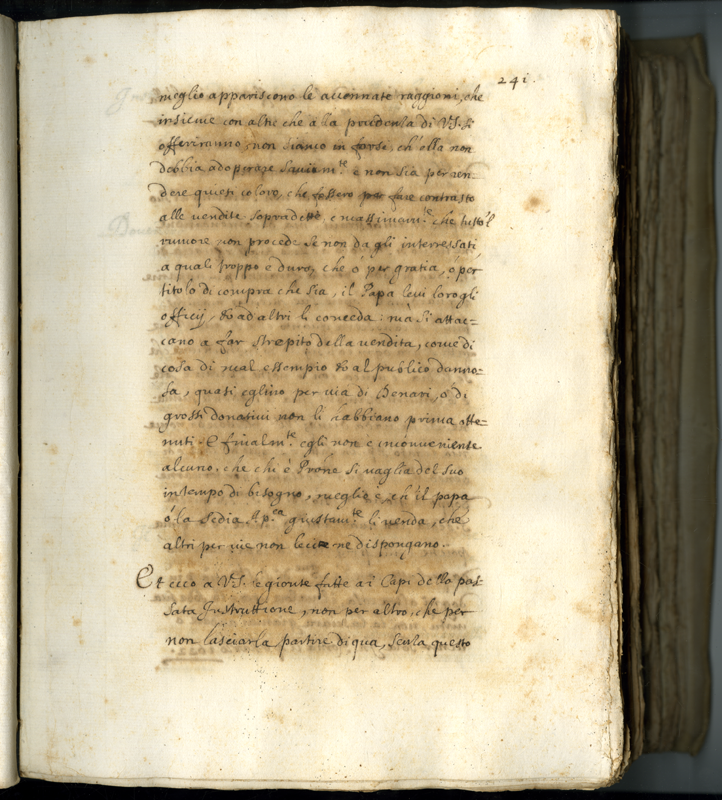 241
meglio appariscono le accennate raggioni, che
insieme con altre che a la prudenza di V.S. si
offeriranno, non siamo in forse, ch'ella non
debbia adoperare saviam.te e non sia per ren-
dere quieti coloro, che fossero per fare contrasto
alle vendite sopradette, e massimam.te che tutto'l
rumore non procede se non da gli interessati
a quali troppo è duro, che ò per gratia, ò per
titolo di compra che sia, il Papa levi loro gli
officij, et ad altri li conceda: mà si attac-
cano a far strepito della vendita, come di
cosa di mal essempio et al publico danno-
sa, quasi eglino per via di Denari, ò di
grossi donativi non li habbiano prima otte-
nuti. E finalm.te egli non è inconveniente
alcuno, che chi è Prone si vaglia del suo
in tempo di bisogno, meglio è ch'il papa
ò la Sedia Ap.ca giustam.te li venda, che
altri per vie non lecite ne dispongano.
Et ecco a V.S. le gionte fatte ai Capi della pas-
sata Instruttione, non per altro, che per
non lasciarla partire di qua, senza questo